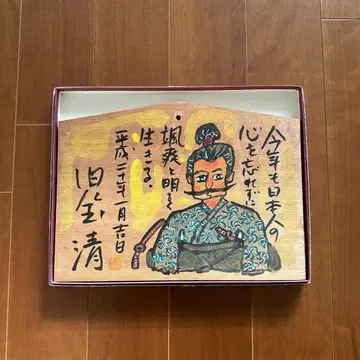 今年も日本人の
心を忘れずに
颯爽と明るく
生きる。
平成二十年一月吉日
清